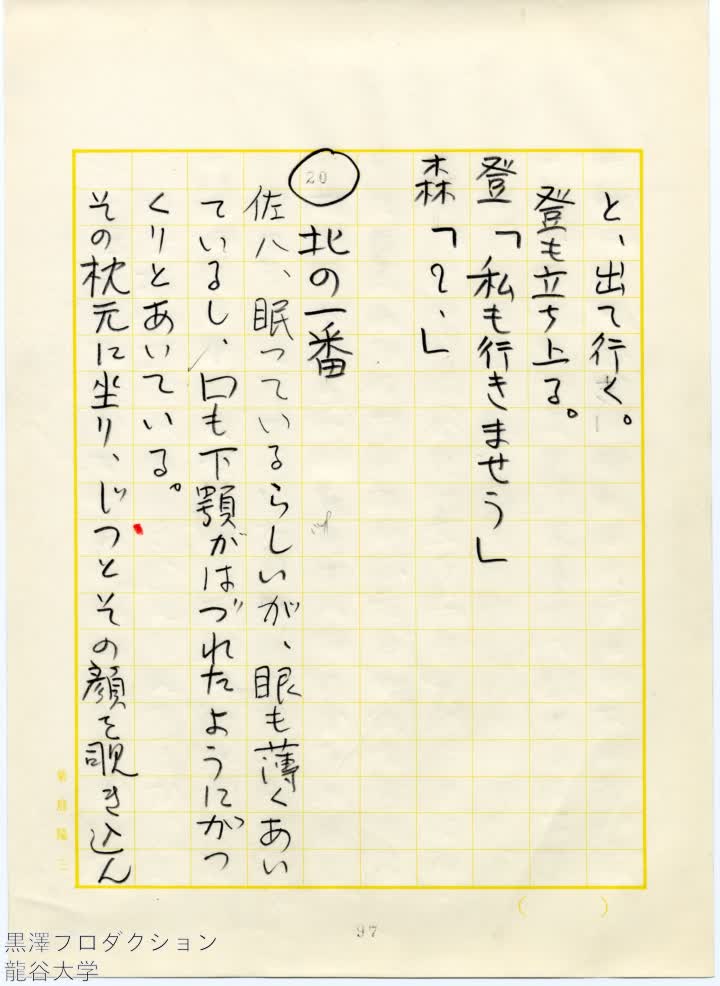 と、出て行く。
登も立ち上る。
登「私も行きませう」
森「？、」
20
北の一番
佐八、眠っているらしいが、眼も薄くあい
ているし、口も下顎がはづれたようにがっ
くりとあいている。
その枕元に坐り、じつとその顔を覗き込ん
97
黒澤プロダクション
龍谷大学